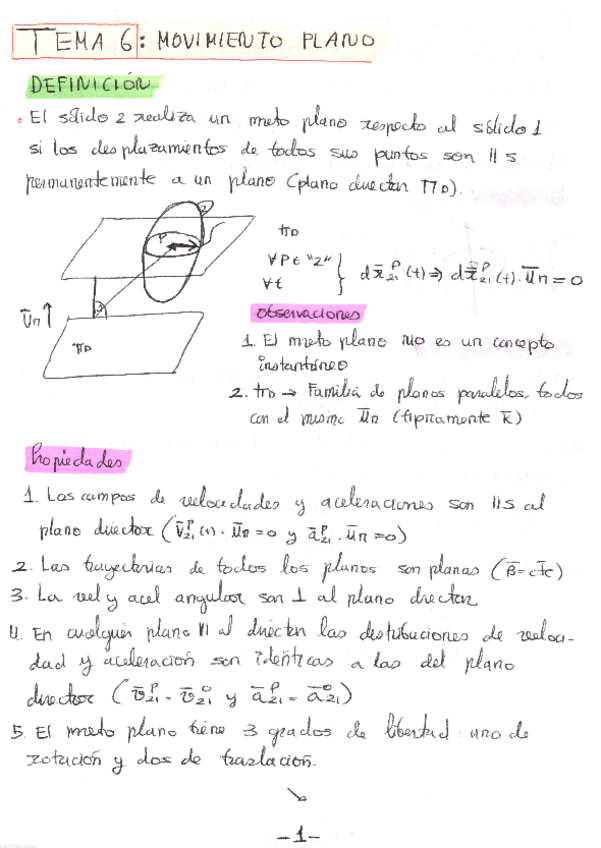 TEMA 6: MOVIMIENTO PLANO
DEFINICIÓN
• El sólido 2 realiza un mvto plano respecto al sólido 1
si los desplazamientos de todos sus puntos son ||s
permanentemente a un plano (plano director ΠD).
2
P
ΠD
∀P ∈ "2"
∀t
} dx̄₂₁ᴾ(t) ⇒ dx̄₂₁ᴾ(t) · ūn = 0
ūn ↑
ΠD
Observaciones
1. El mvto plano NO es un concepto
instantáneo
2. ΠD → Familia de planos paralelos, todos
con el mismo ūn (tipicamente k̄)
Propiedades
1. Los campos de velocidades y aceleraciones son ||s al
plano director (v̄₂₁ᴾ(t) · ūn = 0 y ā₂₁ᴾ · ūn = 0)
2. Las trayectorias de todos los planos son planas (B̄ = c̄tc)
3. La vel y acel angular son ⊥ al plano director
4. En cualquier plano || al director las distribuciones de veloci-
dad y aceleración son idénticas a las del plano
director (v̄₂₁ᴾ = v̄₂₁ᴼ y ā₂₁ᴾ = ā₂₁ᴼ)
5. El mvto plano tiene 3 grados de libertad: uno de
rotación y dos de traslación.
↘
-1-